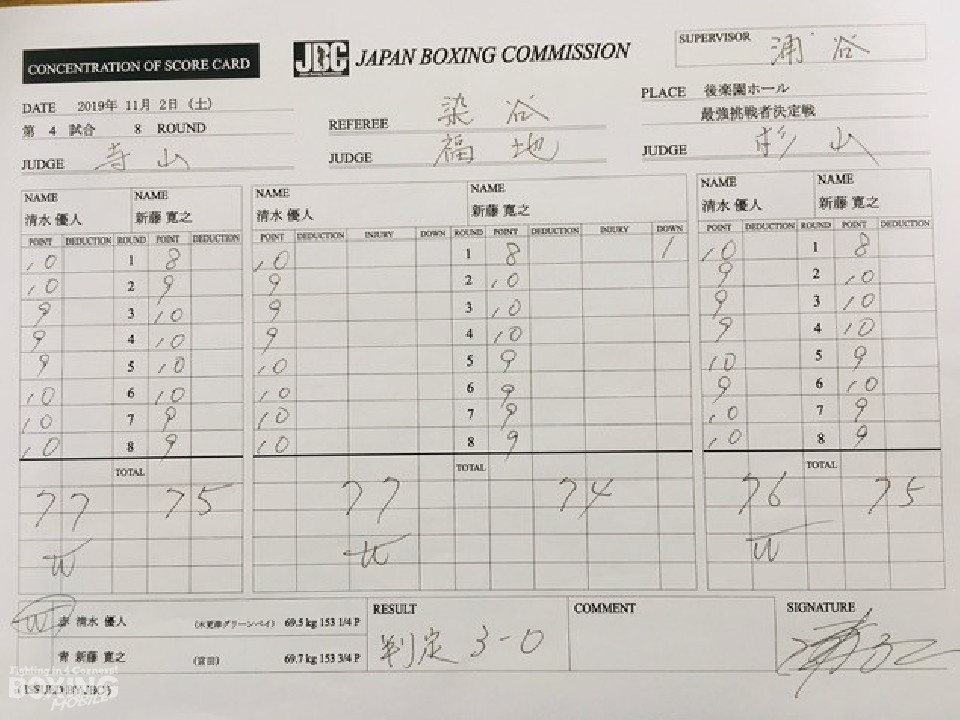 CONCENTRATION OF SCORE CARD
JBC JAPAN BOXING COMMISSION
SUPERVISOR 浦谷
DATE 2019年 11月 2日 (土)
PLACE 後楽園ホール
第 4 試合 8 ROUND
REFEREE 染谷
最強挑戦者決定戦
JUDGE 寺山
JUDGE 福地
JUDGE 杉山
NAME NAME NAME NAME NAME NAME
清水 優人 新藤 寛之 清水 優人 新藤 寛之 清水 優人 新藤 寛之
POINT DEDUCTION ROUND POINT DEDUCTION POINT DEDUCTION INJURY DOWN ROUND POINT DEDUCTION INJURY DOWN POINT DEDUCTION ROUND POINT DEDUCTION
10 1 8 10 1 8 1 10 1 8
10 2 9 9 2 10 9 2 10
9 3 10 9 3 10 9 3 10
9 4 10 9 4 10 9 4 10
9 5 10 10 5 9 10 5 9
10 6 10 10 6 9 9 6 10
10 7 9 10 7 9 10 7 9
10 8 9 10 8 9 10 8 9
TOTAL TOTAL TOTAL
77 75 77 74 76 75
W W W
W 赤 清水 優人 (木更津グリーンベイ) 69.5 kg 153 1/4 P
青 新藤 寛之 (宮田) 69.7 kg 153 3/4 P
RESULT
判定 3-0
COMMENT
SIGNATURE
(ISSUED BY JBC)
Fighting in 4 Corners!
BOXING
MOBILE